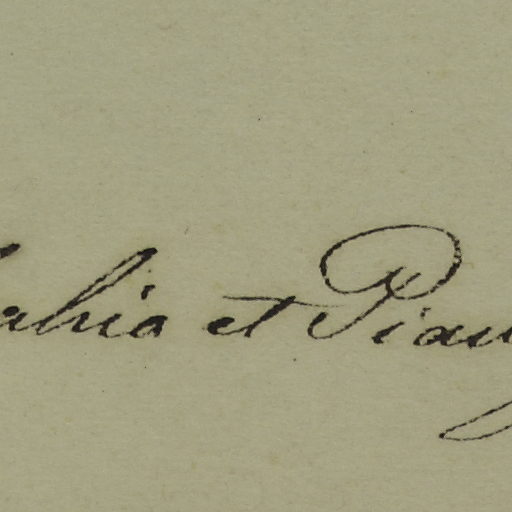 ahia et Piau